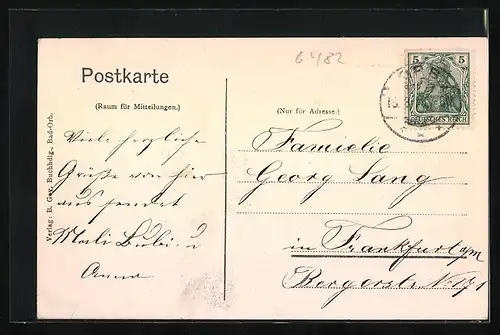 6482
Postkarte
(Raum für Mitteilungen.)
Viele herzliche
Grüße von hier
aus sendet
Anna
Verlag: B. Buchhdlg., Bad-Orb.
(Nur für Adresse.)
Familie
Georg Lang
in Frankfurt a/m
Bergerstr. No 171
5 5
DEUTSCHES REICH
ORB